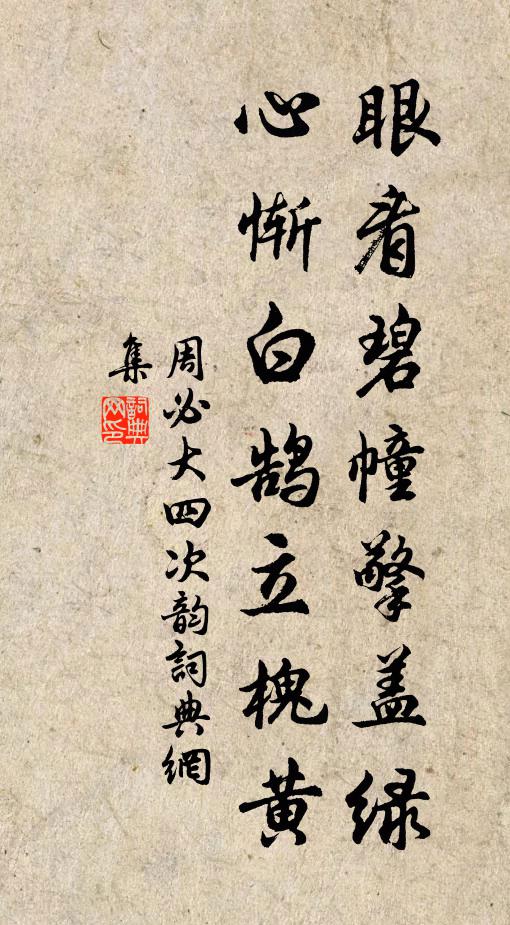 眼看碧幢擎盖绿
心惭白鹄立槐黄
周必大四次韵詞典網
集
詞典
网印